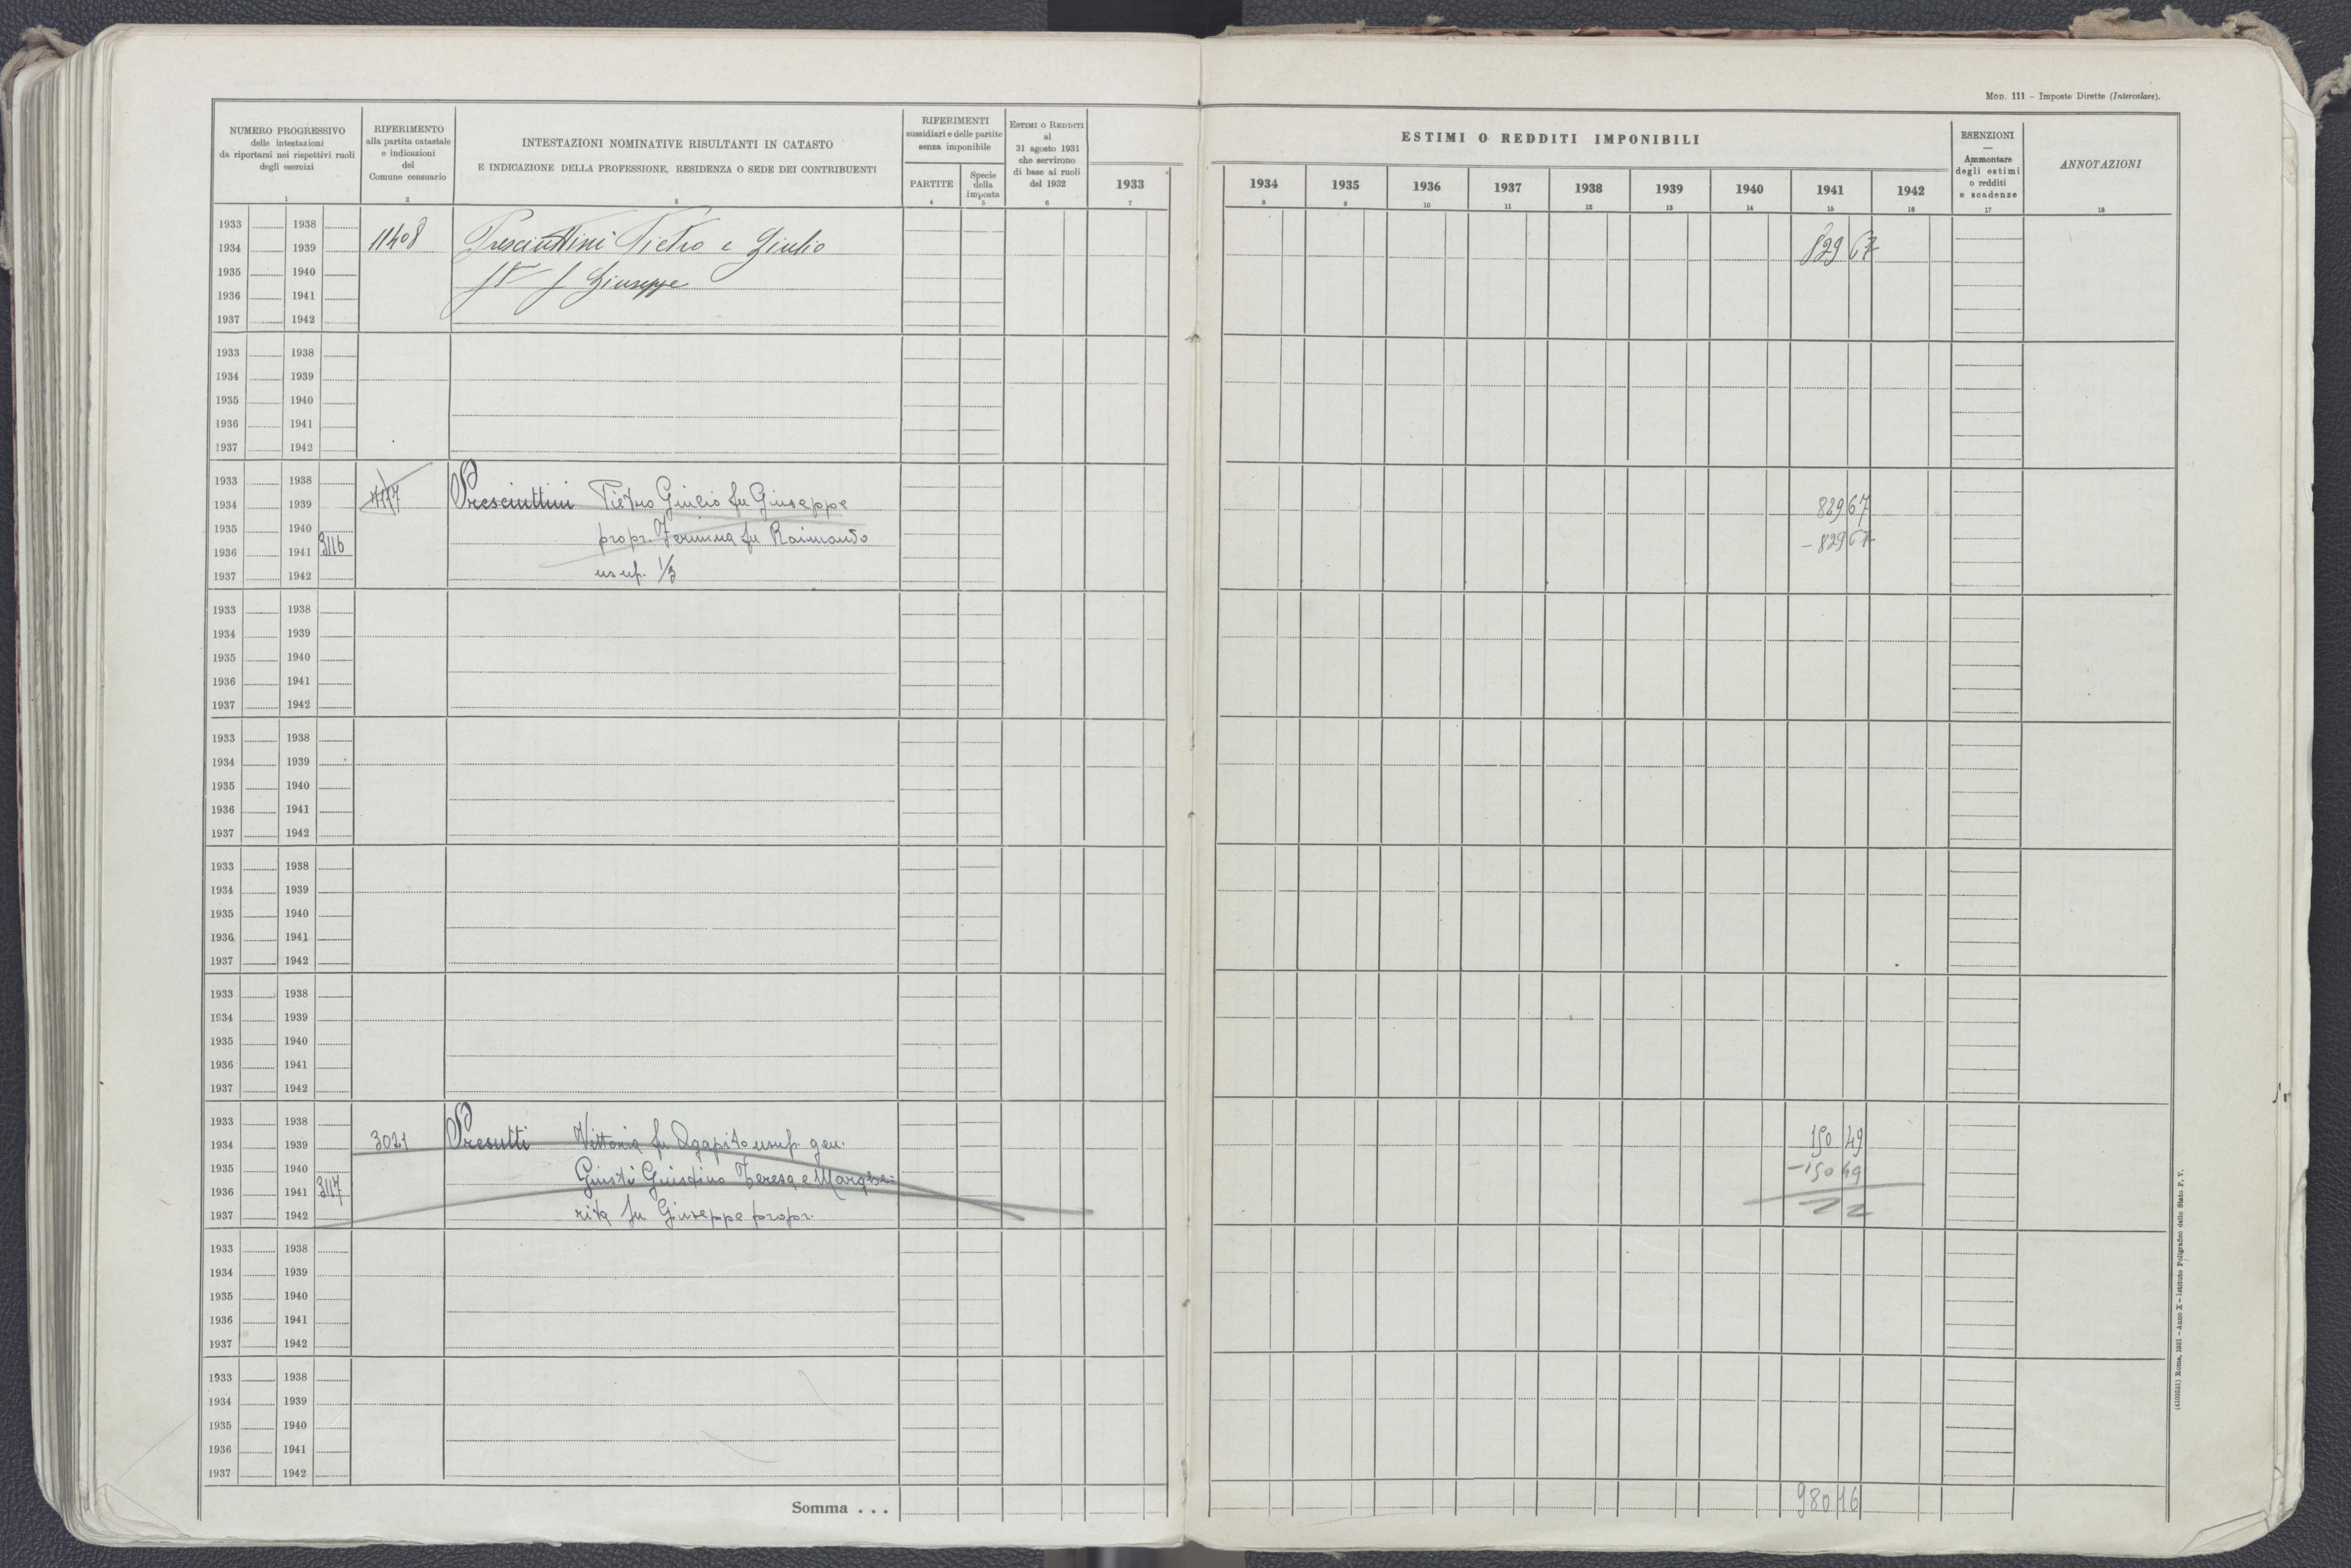 MOD. 111 - Imposte Dirette (Intercalare).
NUMERO PROGRESSIVO
delle intestazioni
da riportarsi nei rispettivi ruoli
degli esercizi
1
RIFERIMENTO
alla partita catastale
e indicazioni
del
Comune censuario
2
INTESTAZIONI NOMINATIVE RISULTANTI IN CATASTO
E INDICAZIONE DELLA PROFESSIONE, RESIDENZA O SEDE DEI CONTRIBUENTI
3
RIFERIMENTI
sussidiari e delle partite
senza imponibile
PARTITE
4
Specie
della
imposta
5
ESTIMI O REDDITI
al
31 agosto 1931
che servirono
di base ai ruoli
del 1932
6
1933
7
ESTIMI O REDDITI IMPONIBILI
1934 1935 1936 1937 1938 1939 1940 1941 1942
8 9 10 11 12 13 14 15 16
ESENZIONI
—
Ammontare
degli estimi
o redditi
e scadenze
17
ANNOTAZIONI
18
1933 1938
1934 1939 11408 Presciuttini Pietro e Giulio 829 67
1935 1940 Giuseppe
1936 1941
1937 1942
1933 1938
1934 1939
1935 1940
1936 1941
1937 1942
1933 1938
1934 1939 Presciuttini Pietro Giulio fu Giuseppe 829 67
1935 1940 propr. fu Raimondo - 829 67
1936 1941 3116
1937 1942 usuf. 1/3
1933 1938
1934 1939
1935 1940
1936 1941
1937 1942
1933 1938
1934 1939
1935 1940
1936 1941
1937 1942
1933 1938
1934 1939
1935 1940
1936 1941
1937 1942
1933 1938
1934 1939
1935 1940
1936 1941
1937 1942
1933 1938
1934 1939 3021 Presutti Vittoria fu Agapito usuf. gen. 150 49
1935 1940 -150 49
1936 1941 3117 Giusti Giustino Teresa e Marghe-
1937 1942 rita fu Giuseppe propr.
1933 1938
1934 1939
1935 1940
1936 1941
1937 1942
1933 1938
1934 1939
1935 1940
1936 1941
1937 1942
Somma . . . 980 16
(4100521) Roma, 1931 - Anno X - Istituto Poligrafico dello Stato P. V.